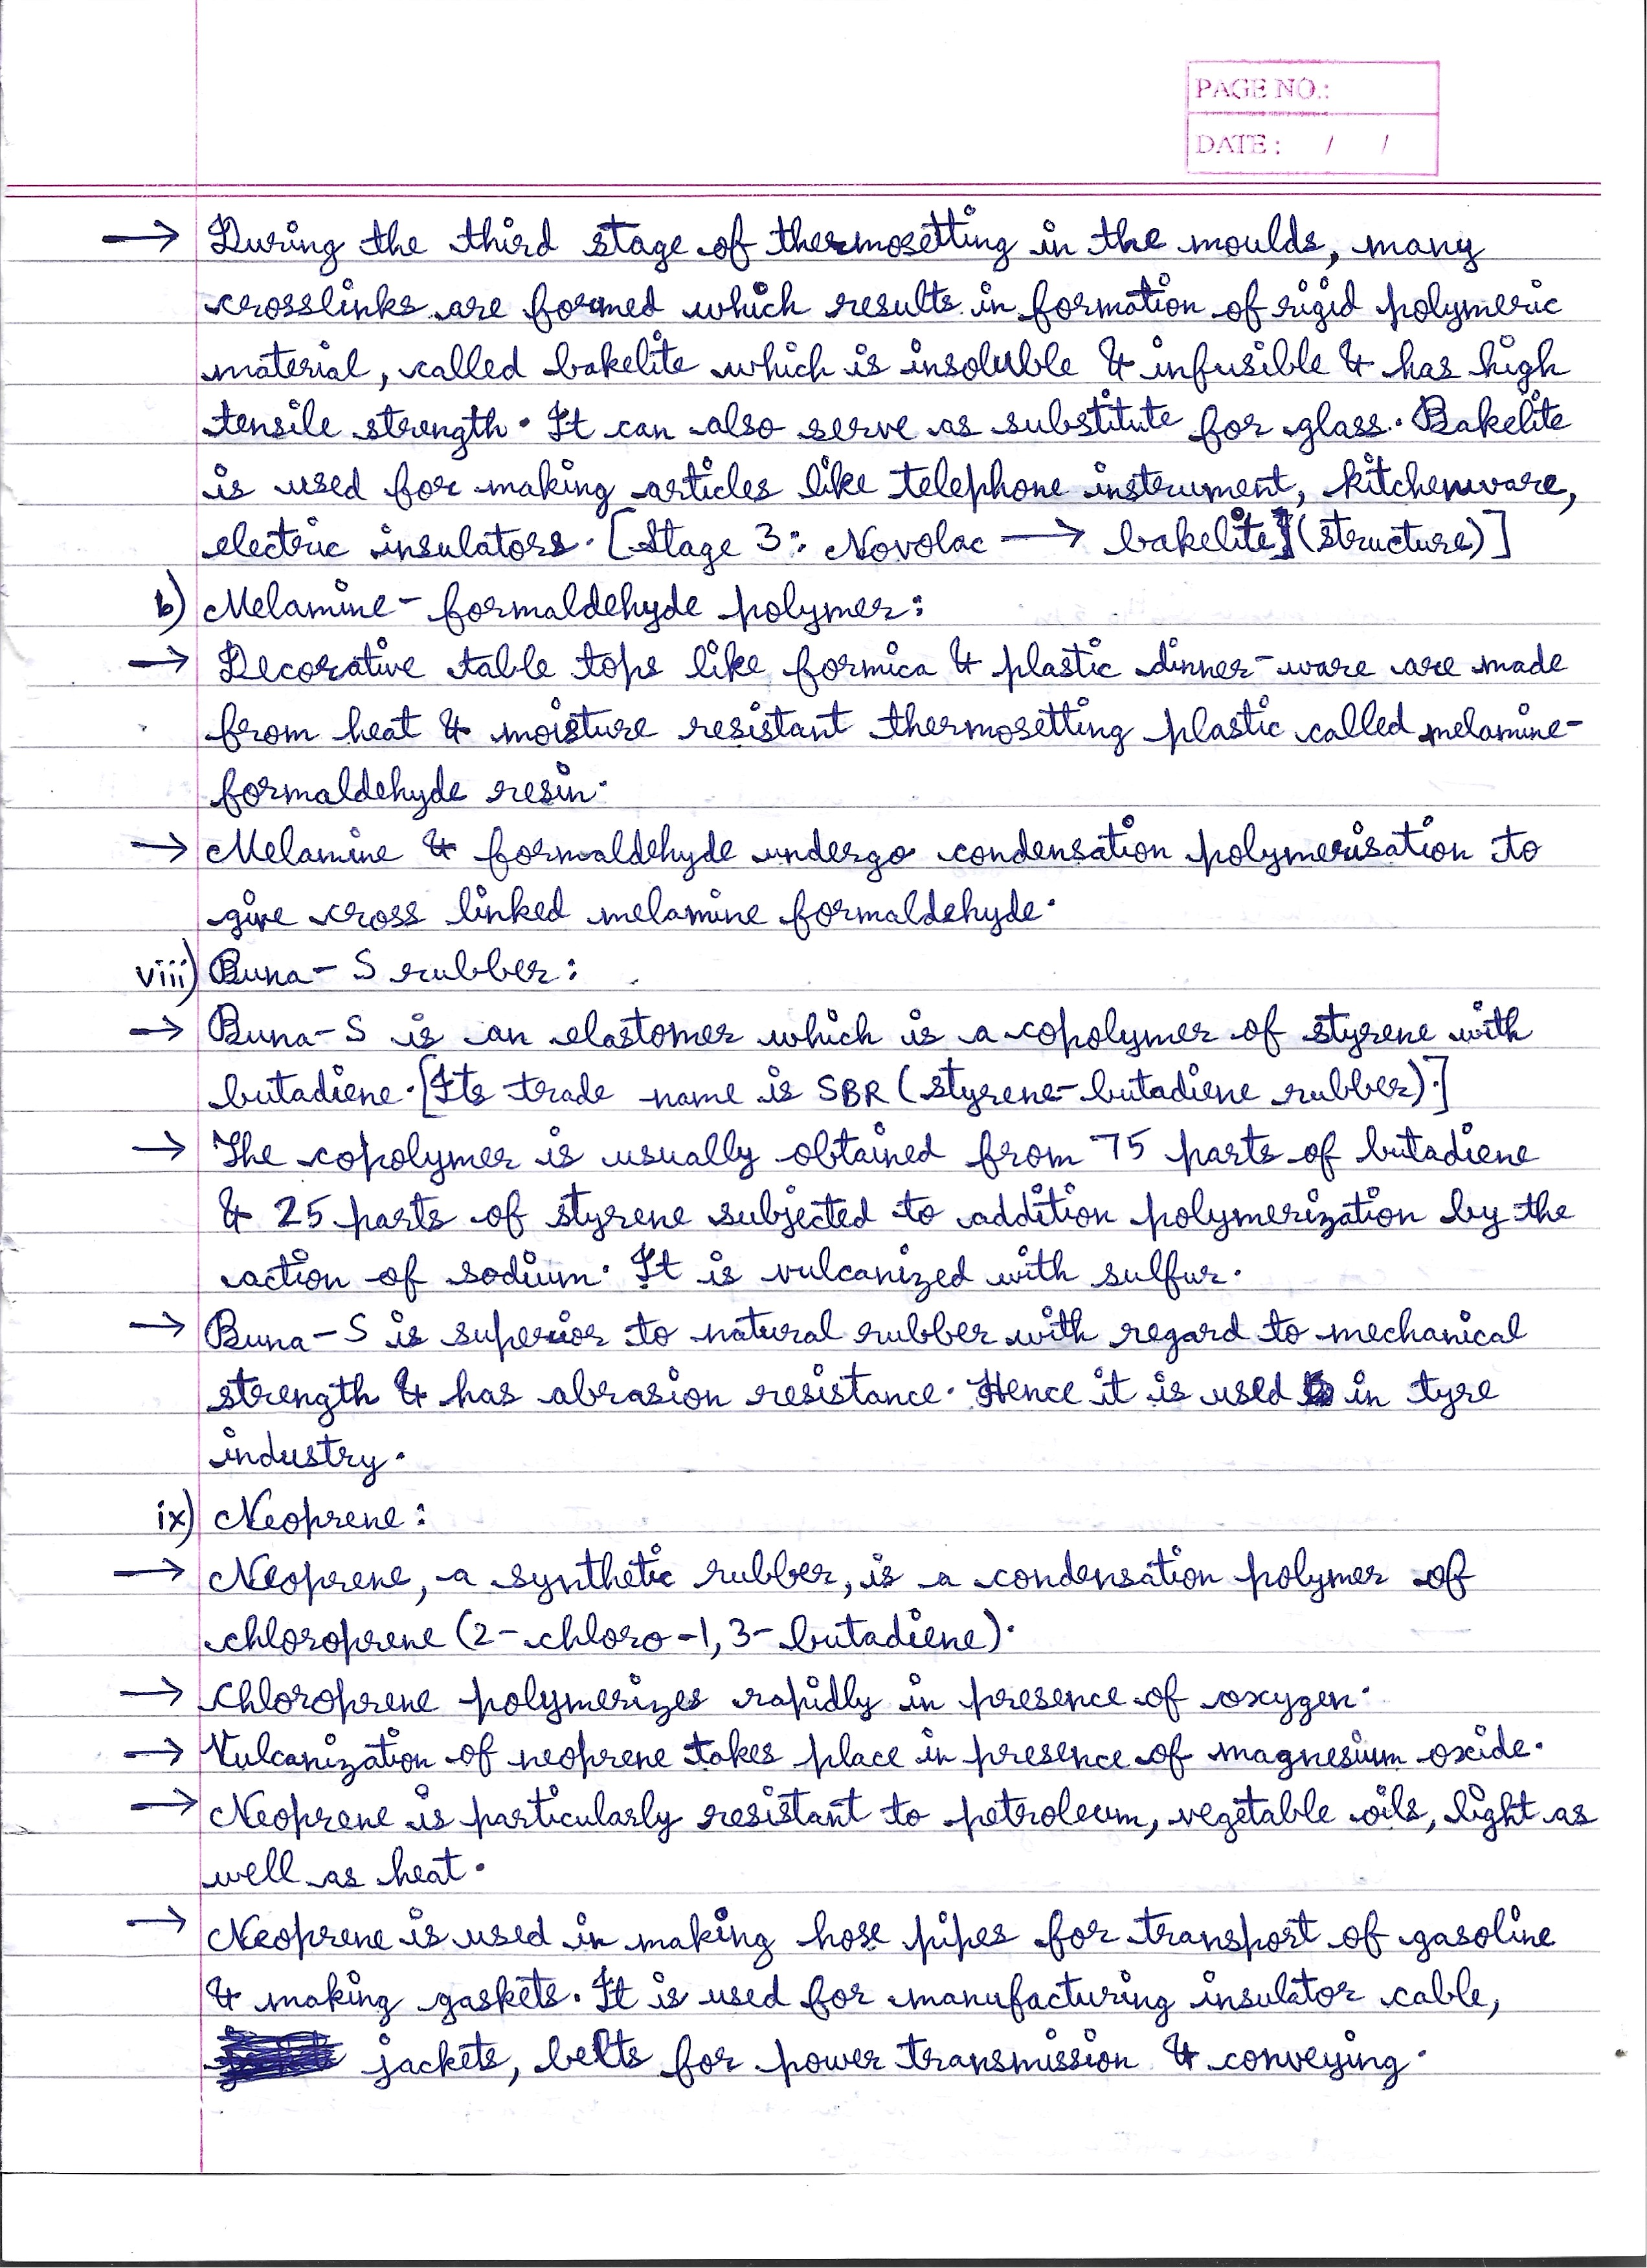 PAGE NO.:
DATE: / /
→ During the third stage of thermosetting in the moulds, many
crosslinks are formed which results in formation of rigid polymeric
material, called bakelite which is insoluble & infusible & has high
tensile strength. It can also serve as substitute for glass. Bakelite
is used for making articles like telephone instrument, kitchenware,
electric insulators. [Stage 3: Novolac → bakelite (structure)]
b) Melamine-formaldehyde polymer:
→ Decorative table tops like formica & plastic dinner-ware are made
from heat & moisture resistant thermosetting plastic called melamine-
formaldehyde resin.
→ Melamine & formaldehyde undergo condensation polymerisation to
give cross linked melamine formaldehyde.
viii) Buna-S rubber:
→ Buna-S is an elastomer which is a copolymer of styrene with
butadiene. [Its trade name is SBR (styrene-butadiene rubber).]
→ The copolymer is usually obtained from 75 parts of butadiene
& 25 parts of styrene subjected to addition polymerization by the
action of sodium. It is vulcanized with sulfur.
→ Buna-S is superior to natural rubber with regard to mechanical
strength & has abrasion resistance. Hence it is used in tyre
industry.
ix) Neoprene:
→ Neoprene, a synthetic rubber, is a condensation polymer of
chloroprene (2-chloro-1,3-butadiene).
→ Chloroprene polymerizes rapidly in presence of oxygen.
→ Vulcanization of neoprene takes place in presence of magnesium oxide.
→ Neoprene is particularly resistant to petroleum, vegetable oils, light as
well as heat.
→ Neoprene is used in making hose pipes for transport of gasoline
& making gaskets. It is used for manufacturing insulator cable,
jackets, belts for power transmission & conveying.